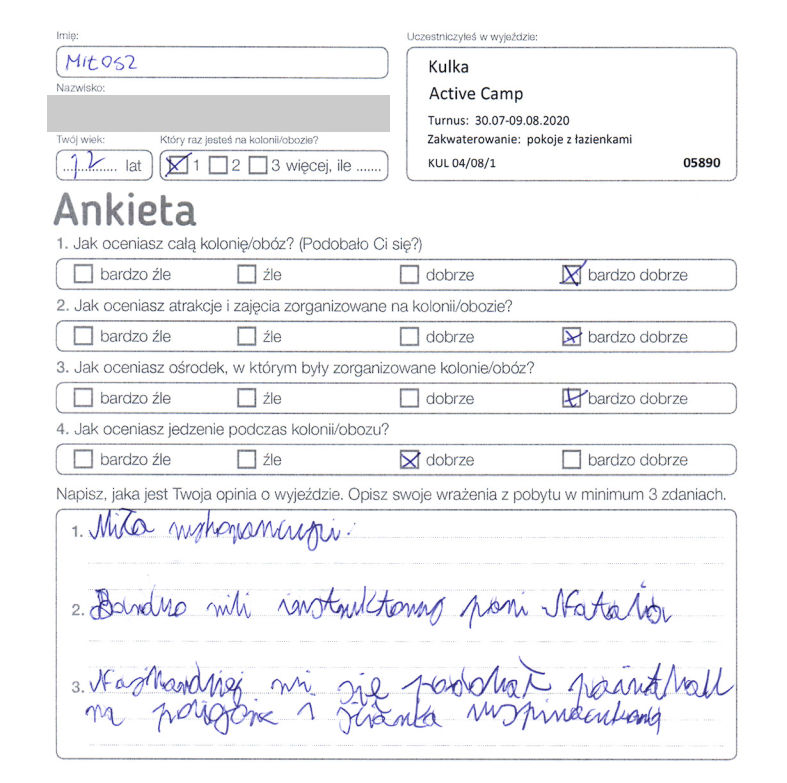 Imię:
Uczestniczyłeś w wyjeździe:
MIŁOSZ
Kulka
Active Camp
Nazwisko:
Turnus: 30.07-09.08.2020
Zakwaterowanie: pokoje z łazienkami
KUL 04/08/1 05890
Twój wiek: Który raz jesteś na kolonii/obozie?
12 lat 1 2 3 więcej, ile .......
Ankieta
1. Jak oceniasz całą kolonię/obóz? (Podobało Ci się?)
bardzo źle źle dobrze bardzo dobrze
2. Jak oceniasz atrakcje i zajęcia zorganizowane na kolonii/obozie?
bardzo źle źle dobrze bardzo dobrze
3. Jak oceniasz ośrodek, w którym były zorganizowane kolonie/obóz?
bardzo źle źle dobrze bardzo dobrze
4. Jak oceniasz jedzenie podczas kolonii/obozu?
bardzo źle źle dobrze bardzo dobrze
Napisz, jaka jest Twoja opinia o wyjeździe. Opisz swoje wrażenia z pobytu w minimum 3 zdaniach.
1. Miła
2. Bardzo mili instruktorzy pani Natalia
3. Najbardziej mi się podobał paintball
na poligonie i ścianka wspinaczkowa